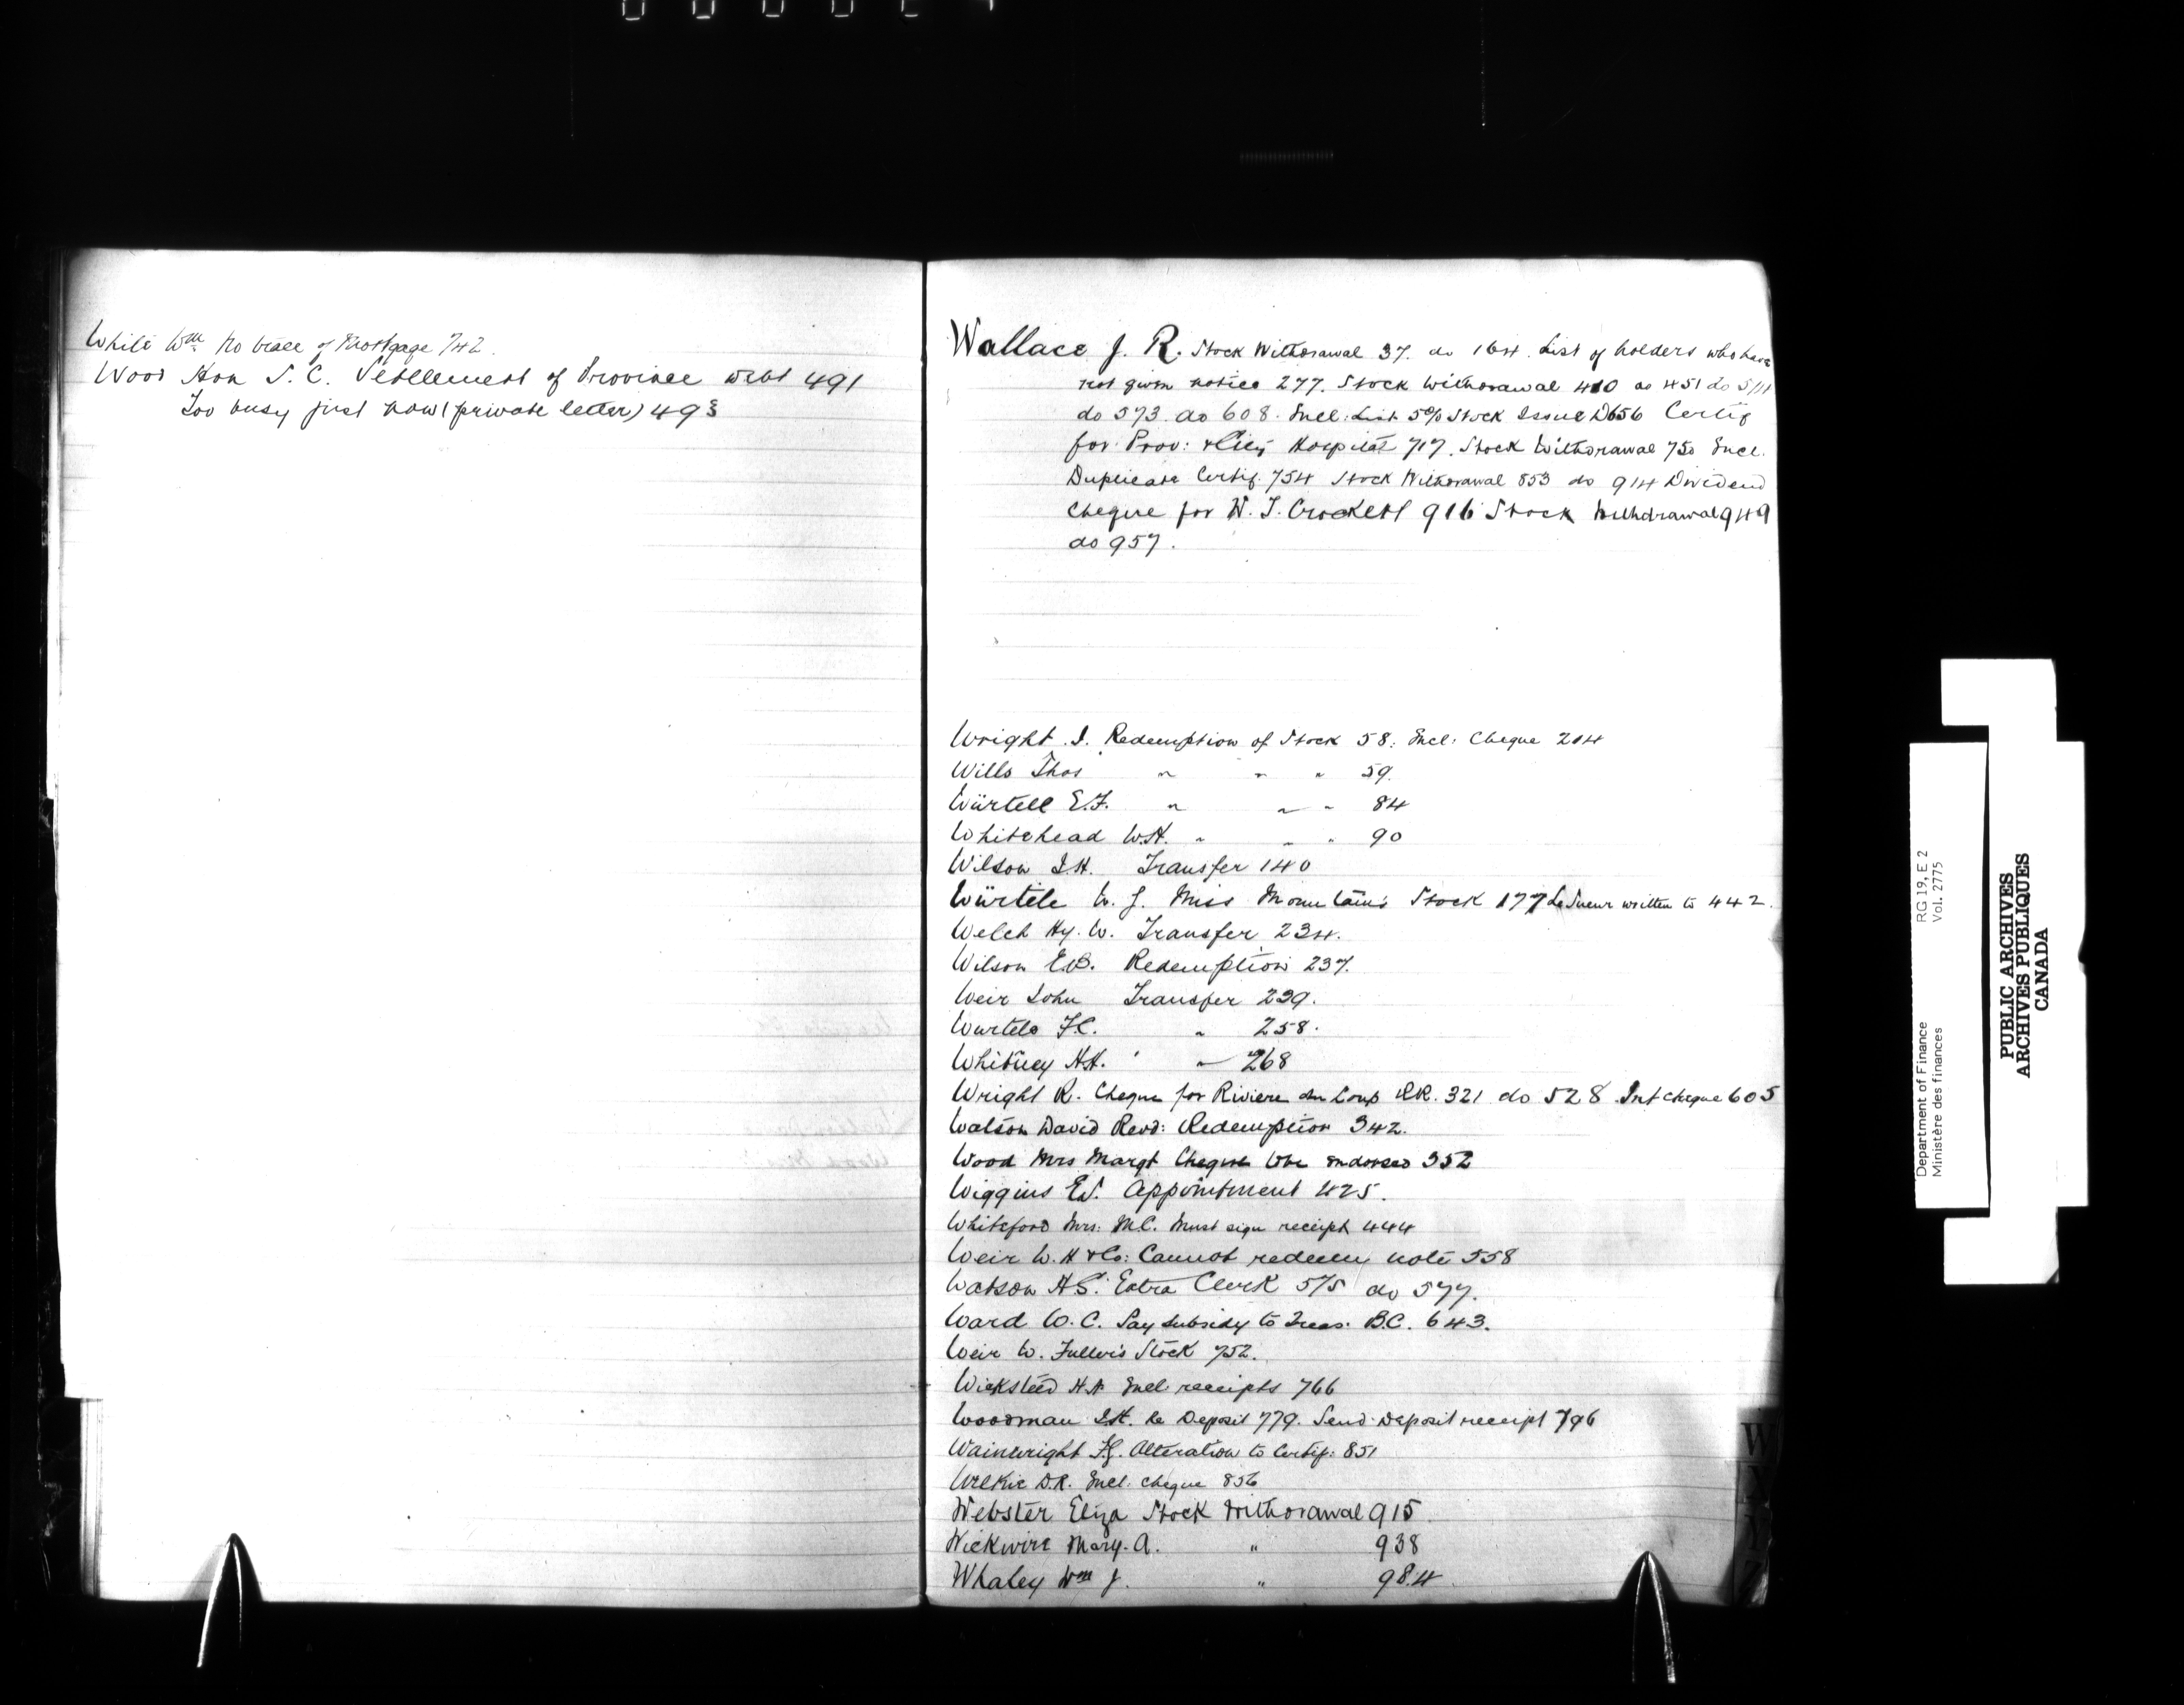 White Wm No trace of Mortgage 742.
Wood Hon S. C. Settlement of Province debt 491
Too busy just now (private letter) 493
Wallace J. R. Stock Withdrawal 37. do 164. List of holders who have
not given notice 277. Stock Withdrawal 410 do 451 do 511
do 573. do 608. Encl: List 5% Stock Issue D656 Certif
for Prov: & City Hospital 717. Stock Withdrawal 750 Encl.
Duplicate Certif. 754 Stock Withdrawal 853 do 914 Dividend
Cheque for W. T. Crockett 916 Stock Withdrawal 949
do 957.
Wright I. Redemption of Stock 58. Encl: Cheque 204
Wills Thos " " " 59.
Würtell E.F. " " " 84
Whitehead W.H. " " " 90
Wilson I.H. Transfer 140
Würtele W. J. Miss Mountain's Stock 177 LeSueur written to 442.
Welch Hy. W. Transfer 234.
Wilson E.B. Redemption 237.
Weir John Transfer 239.
Wurtele F.C. " 258.
Whitney H.H. " " 268
Wright R. Cheque for Riviere du Loup RR. 321 do 528 Int Cheque 605
Watson David Revd: Redemption 342.
Wood Mrs Margt Cheque to be endorsed 352
Wiggins E.S. Appointment 425.
Whiteford Mrs: M.C. Must sign receipt 444
Weir W. H & Co: Cannot redeem note 558
Watson H.S. Extra Clerk 575 do 577.
Ward W. C. Pay subsidy to Treas: B.C. 643.
Weir W. Fuller's Stock 752.
Wicksteed H.A Encl receipts 766
Woodman I.H. Re Deposit 779. Send Deposit receipt 796
Wainwright F.G. Alteration to Certif: 851
Wilkie D.R. Encl. Cheque 856
Webster Eliza Stock Withdrawal 915
Wickwire Mary. A. " 938
Whaley Wm J. " 984
W
X
Y
Z
Department of Finance RG 19, E 2
Ministère des finances Vol. 2775
PUBLIC ARCHIVES
ARCHIVES PUBLIQUES
CANADA